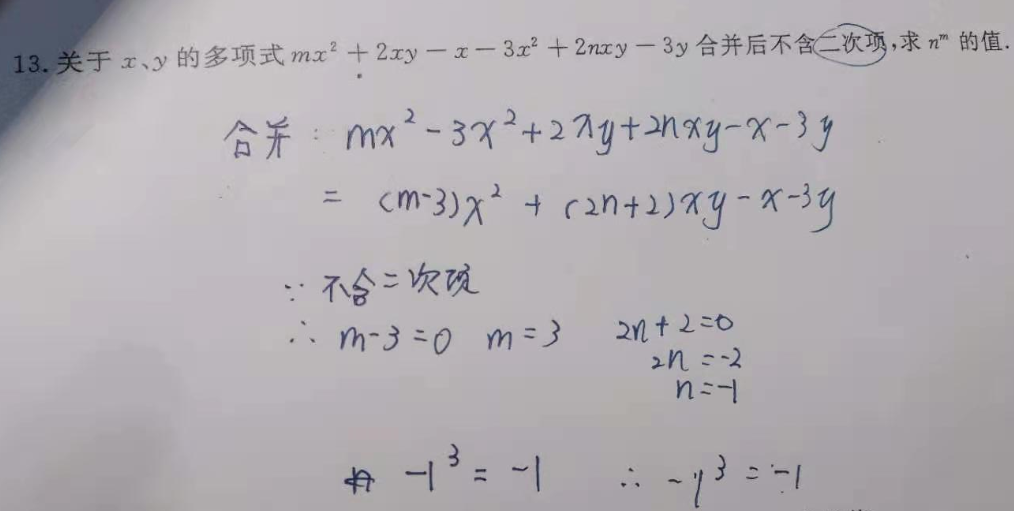 13. 关于 x、y 的多项式 mx² + 2xy − x − 3x² + 2nxy − 3y 合并后不含二次项,求 nᵐ 的值.
合并: mx² - 3x² + 2xy + 2nxy - x - 3y
= (m-3)x² + (2n+2)xy - x - 3y
∵ 不含二次项
∴ m-3=0 m=3 2n+2=0
2n=-2
n=-1
-1³ = -1 ∴ -1³ = -1